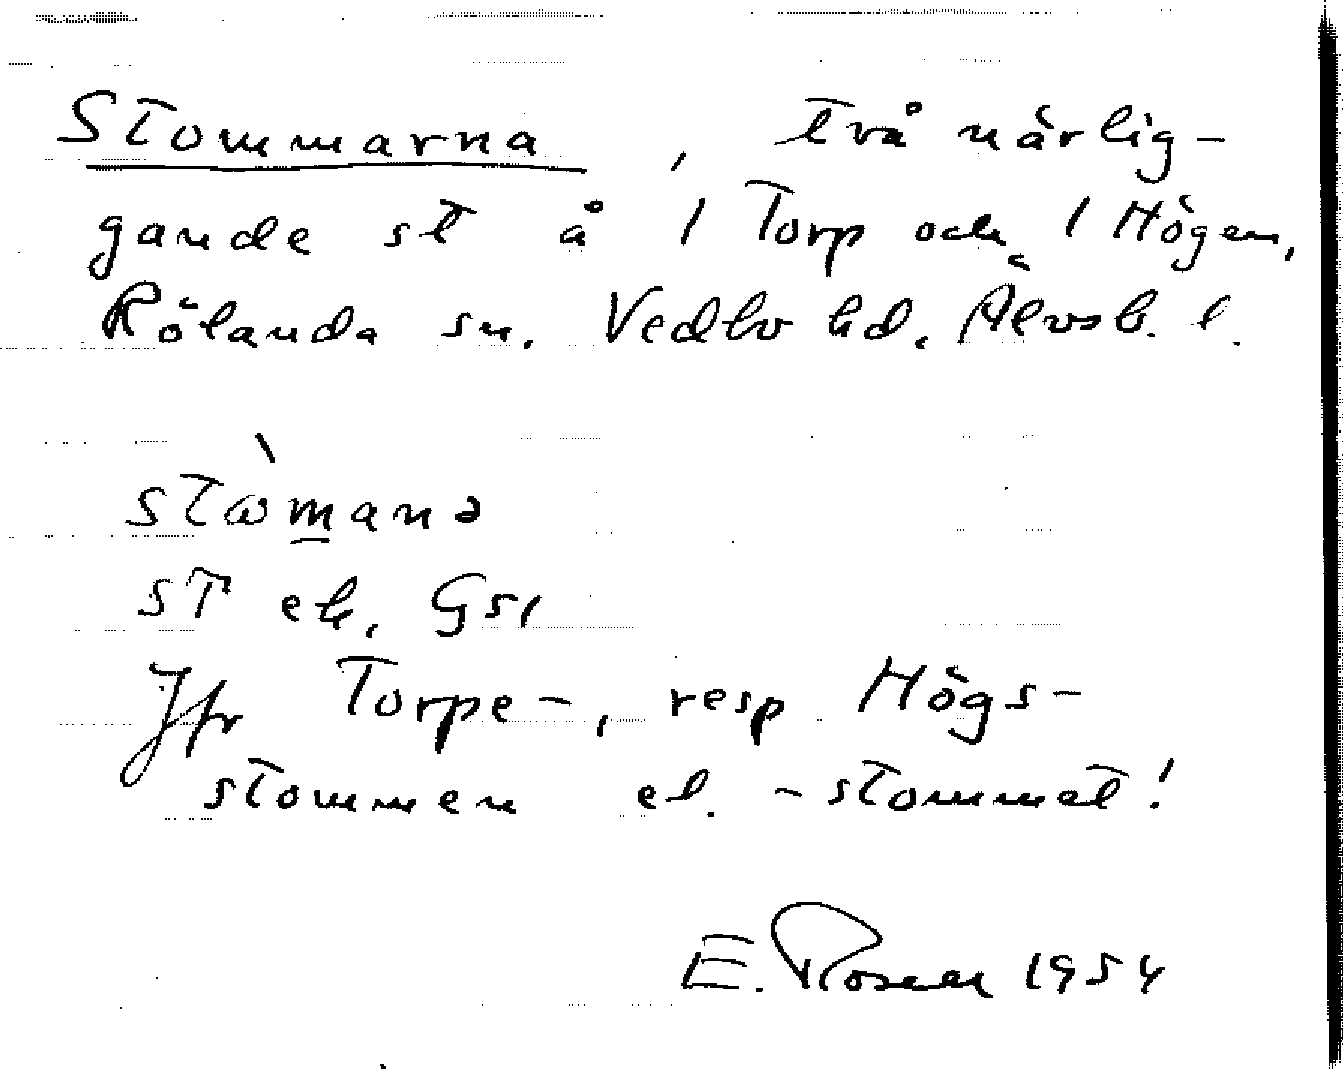 Stommarna, två närlig-
gande st å 1 Torp och 1 Högen,
Rölanda sn. Vedbo hd. Älvsb. l.
stòmana
st ek, Gsl
Jfr Torpe-, resp Högs-
stommen el. -stommet!
E. Rosell 1954